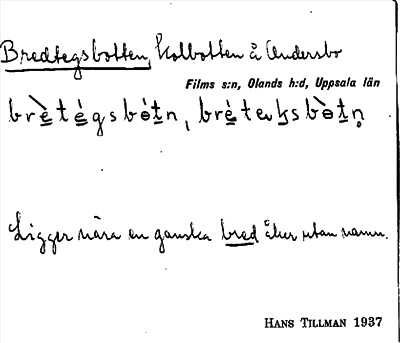 Bredtegsbotten, Kolbotten å Andersbo
Films s:n, Olands h:d, Uppsala län
Ligger nära en ganska bred åker utan namn.
HANS TILLMAN 1937